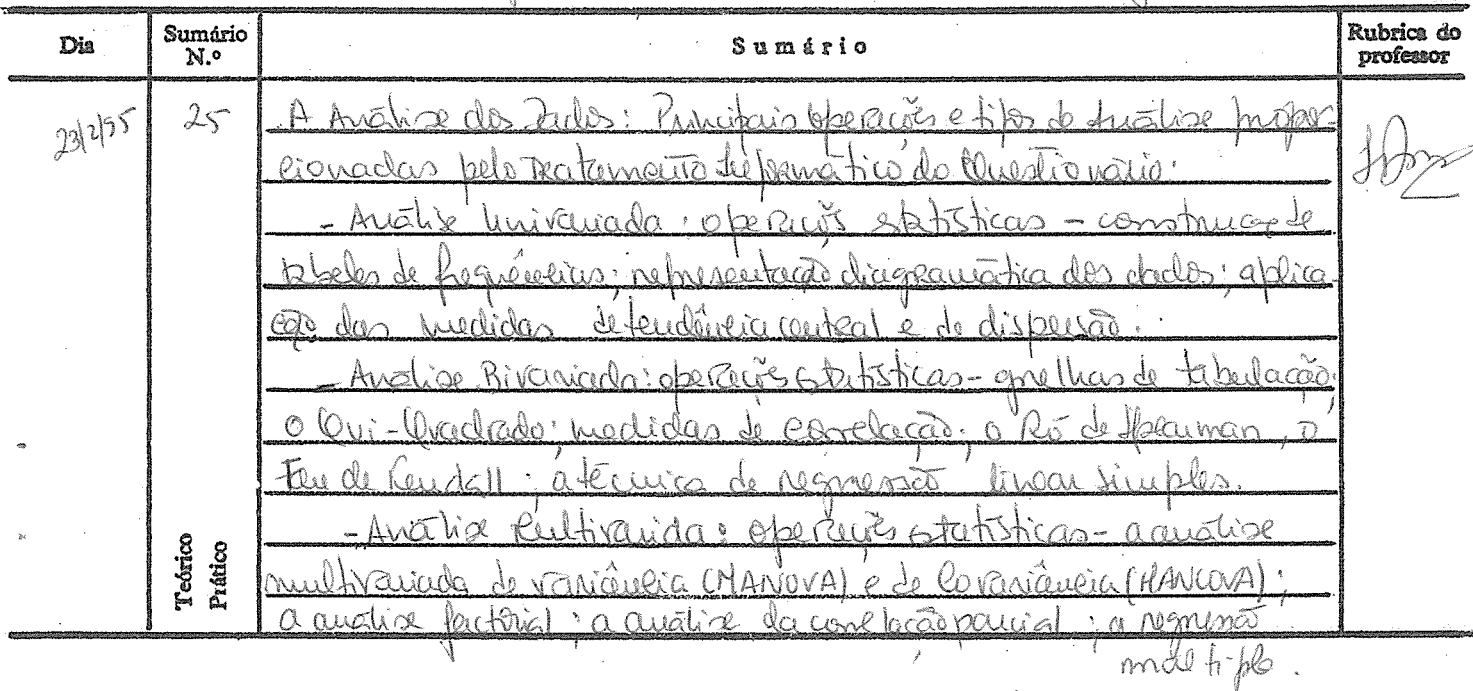 Dia Sumário N.º Sumário Rubrica do professor
23/2/95 25 A Análise dos Dados: Principais operações e tipos de Análise propor-
cionadas pelo Tratamento Informático do Questionário:
- Análise Univariada: operações statísticas - construção de
tabelas de frequências; representação diagramática dos dados; aplica-
ção das medidas de tendência central e de dispersão.
- Análise Bivariada: operações statísticas - grelhas de tabulação.
o Qui-Quadrado; medidas de correlação: o Ró de Spearman, o
Tau de Kendall; a técnica de regressão linear simples.
- Análise Multivariada: operações statísticas - a análise
multivariada de variância (MANOVA) e de Covariância (MANCOVA);
a análise factorial; a análise da correlação parcial; a regressão
múltipla.
Teórico
Prático